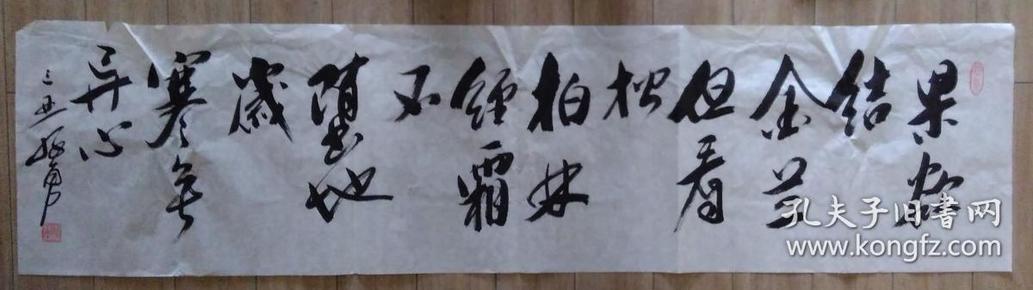 果欲
结
金兰
但看
松
柏林
經霜
不
墮地
歲
寒无
异心
孔夫子旧书网
www.kongfz.com